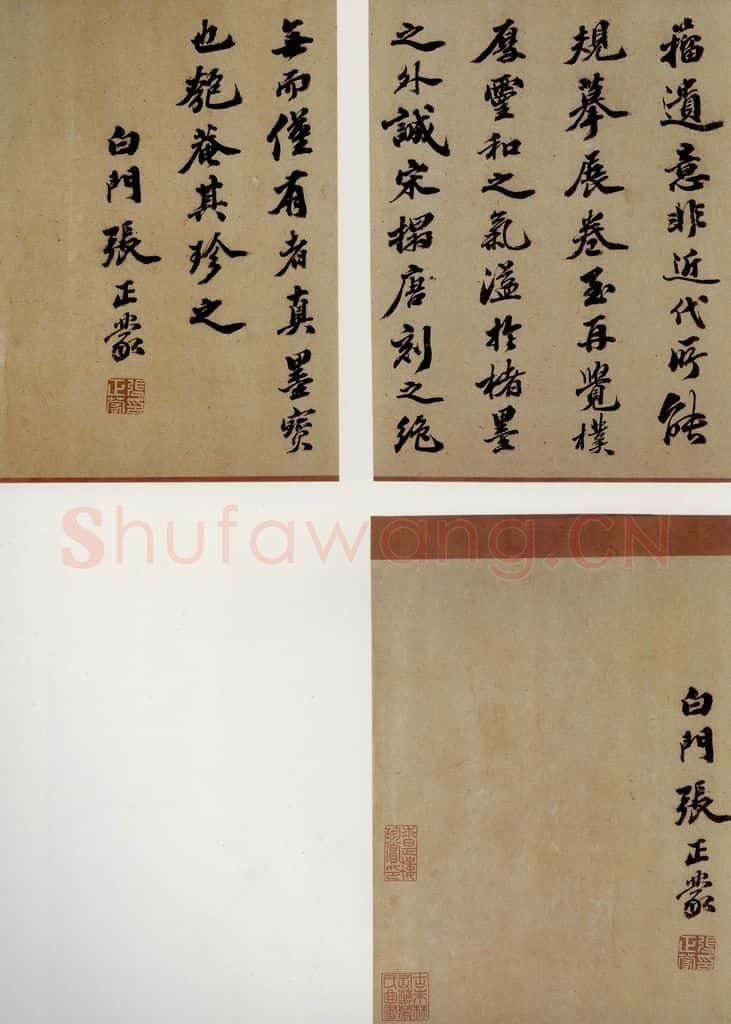 籀遺意非近代所能
規摹展卷至再覺樸
厚靈和之氣溢於楮墨
之外誠宋搨唐刻之絶
無而僅有者真墨寶
也匏菴其珍之
白門張正蒙
張正蒙印
Shufawang.CN
白門張正蒙
張正蒙印